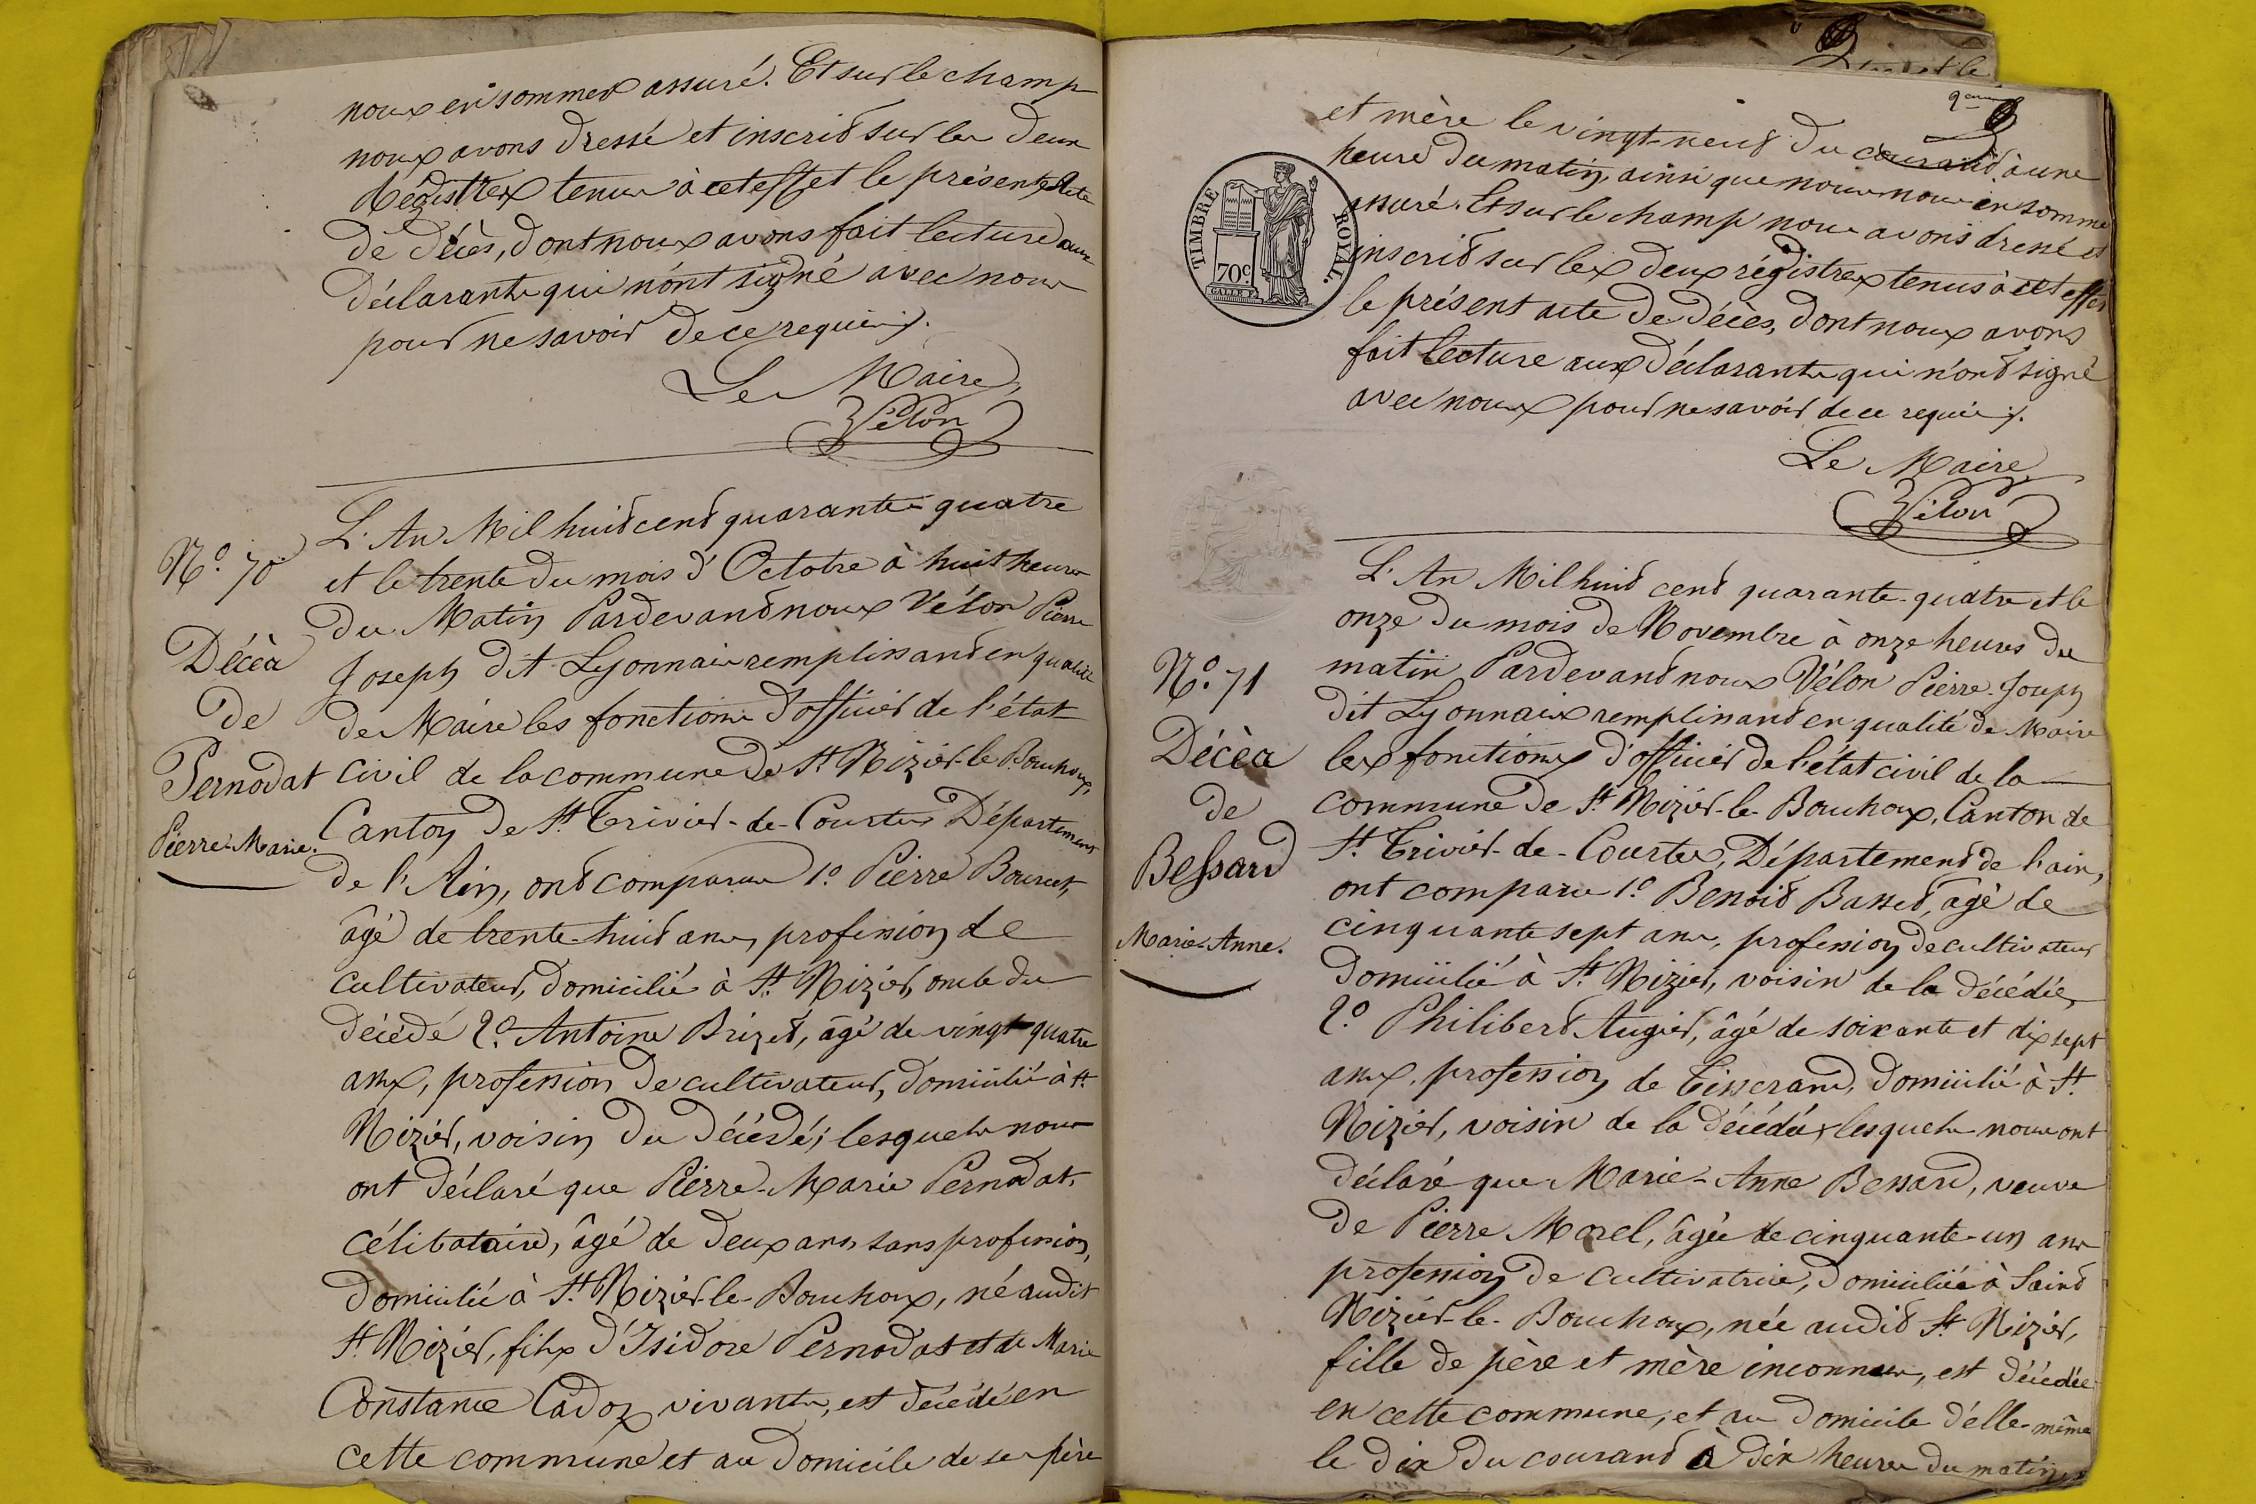 nous en sommes assuré. Et sur le champ
nous avons dressé et inscrit sur les deux
Régistres tenus à cet effet le présent acte
de décès, dont nous avons fait lecture aux
déclarants qui n'ont signé avec nous
pour ne savoir de ce requis.
Le Maire,
Vélon
N.º 70
Décès
de
Pernodat
Pierre-Marie.
L'An Mil huit cent quarante-quatre
et le trente du mois d'Octobre à huit heures
du Matin Pardevant nous Vélon Pierre
Joseph dit Lyonnais remplissant en qualité
de Maire les fonctions d'officier de l'état
civil de la commune de St. Nizier-le-Bouchoux,
Canton de St. Trivier-de-Courtes Département
de l'Ain, ont comparu 1º Pierre Bourcet,
âgé de trente-huit ans, profession de
cultivateur, domicilié à St. Nizier, oncle du
décédé 2º Antoine Brizet, âgé de vingt-quatre
ans, profession de cultivateur, domicilié à St.
Nizier, voisin du décédé; lesquels nous
ont déclaré que Pierre-Marie Pernodat,
célibataire, âgé de deux ans, sans profession,
domicilié à St. Nizier-le-Bouchoux, né audit
St. Nizier, fils d'Isidore Pernodat et de Marie
Constance Cadoz vivants, est décédé en
cette commune et au domicile de ses père
et mère le vingt-neuf du courant, à une
heure du matin, ainsi que nous nous en sommes
assuré. Et sur le champ nous avons dressé et
inscrit sur les deux régistres tenus à cet effet
le présent acte de décès, dont nous avons
fait lecture aux déclarants qui n'ont signé
avec nous pour ne savoir de ce requis.
Le Maire
Vélon
TIMBRE ROYAL.
70c.
N.º 71
Décès
de
Bessard
Marie-Anne.
L'An Mil huit cent quarante-quatre et le
onze du mois de Novembre à onze heures du
matin Pardevant nous Vélon Pierre-Joseph
dit Lyonnais remplissant en qualité de Maire
les fonctions d'officier de l'état civil de la
commune de St. Nizier-le-Bouchoux, Canton de
St. Trivier-de-Courtes, Département de l'ain,
ont comparu 1º Benoit Basset, âgé de
cinquante sept ans, profession de cultivateur
domicilié à St. Nizier, voisin de la décédée,
2º Philibert Augier, âgé de soixante et dix sept
ans, profession de Tisserand, domicilié à St.
Nizier, voisin de la décédée, lesquels nous ont
déclaré que Marie-Anne Bessard, veuve
de Pierre Morel, âgée de cinquante-un ans
profession de cultivatrice, domiciliée à Saint
Nizier-le-Bouchoux, née audit St. Nizier,
fille de père et mère inconnus, est décédée
en cette commune, et au domicile d'elle-même
le dix du courant à dix heures du matin,